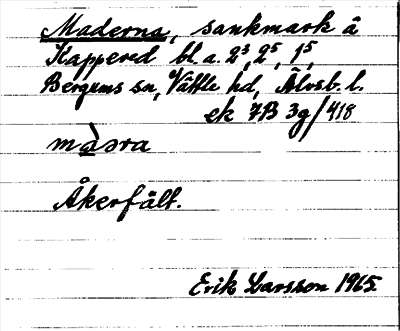 Maderna, sankmark å
Kappered bl. a. 2³, 2⁵, 1⁵,
Bergums sn, V/Vättle hd, Älvsb. l.
ek 7B 3g/418
màdra
Åkerfält.
Erik Larsson 1965.